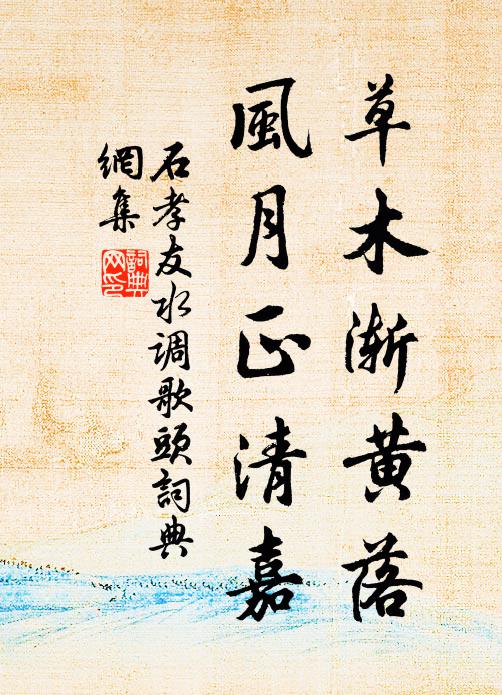 草木渐黄落
風月正清嘉
石孝友水调歌頭詞典
網集
詞典
网印